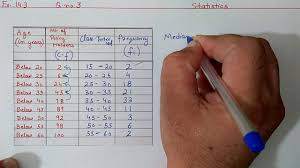 Ex. 14.3 Q no 3 Statistics
Age (in years) | Nr. of Policy Holders (c.f) | Class-Interval | Frequency (f)
Below 20 | 2 | 15 - 20 | 2
Below 25 | 6 | 20 - 25 | 4
Below 30 | 24 | 25 - 30 | 18
Below 35 | 45 | 30 - 35 | 21
Below 40 | 78 | 35 - 40 | 33
Below 45 | 89 | 40 - 45 | 11
Below 50 | 92 | 45 - 50 | 3
Below 55 | 98 | 50 - 55 | 6
Below 60 | 100 | 55 - 60 | 2
Median